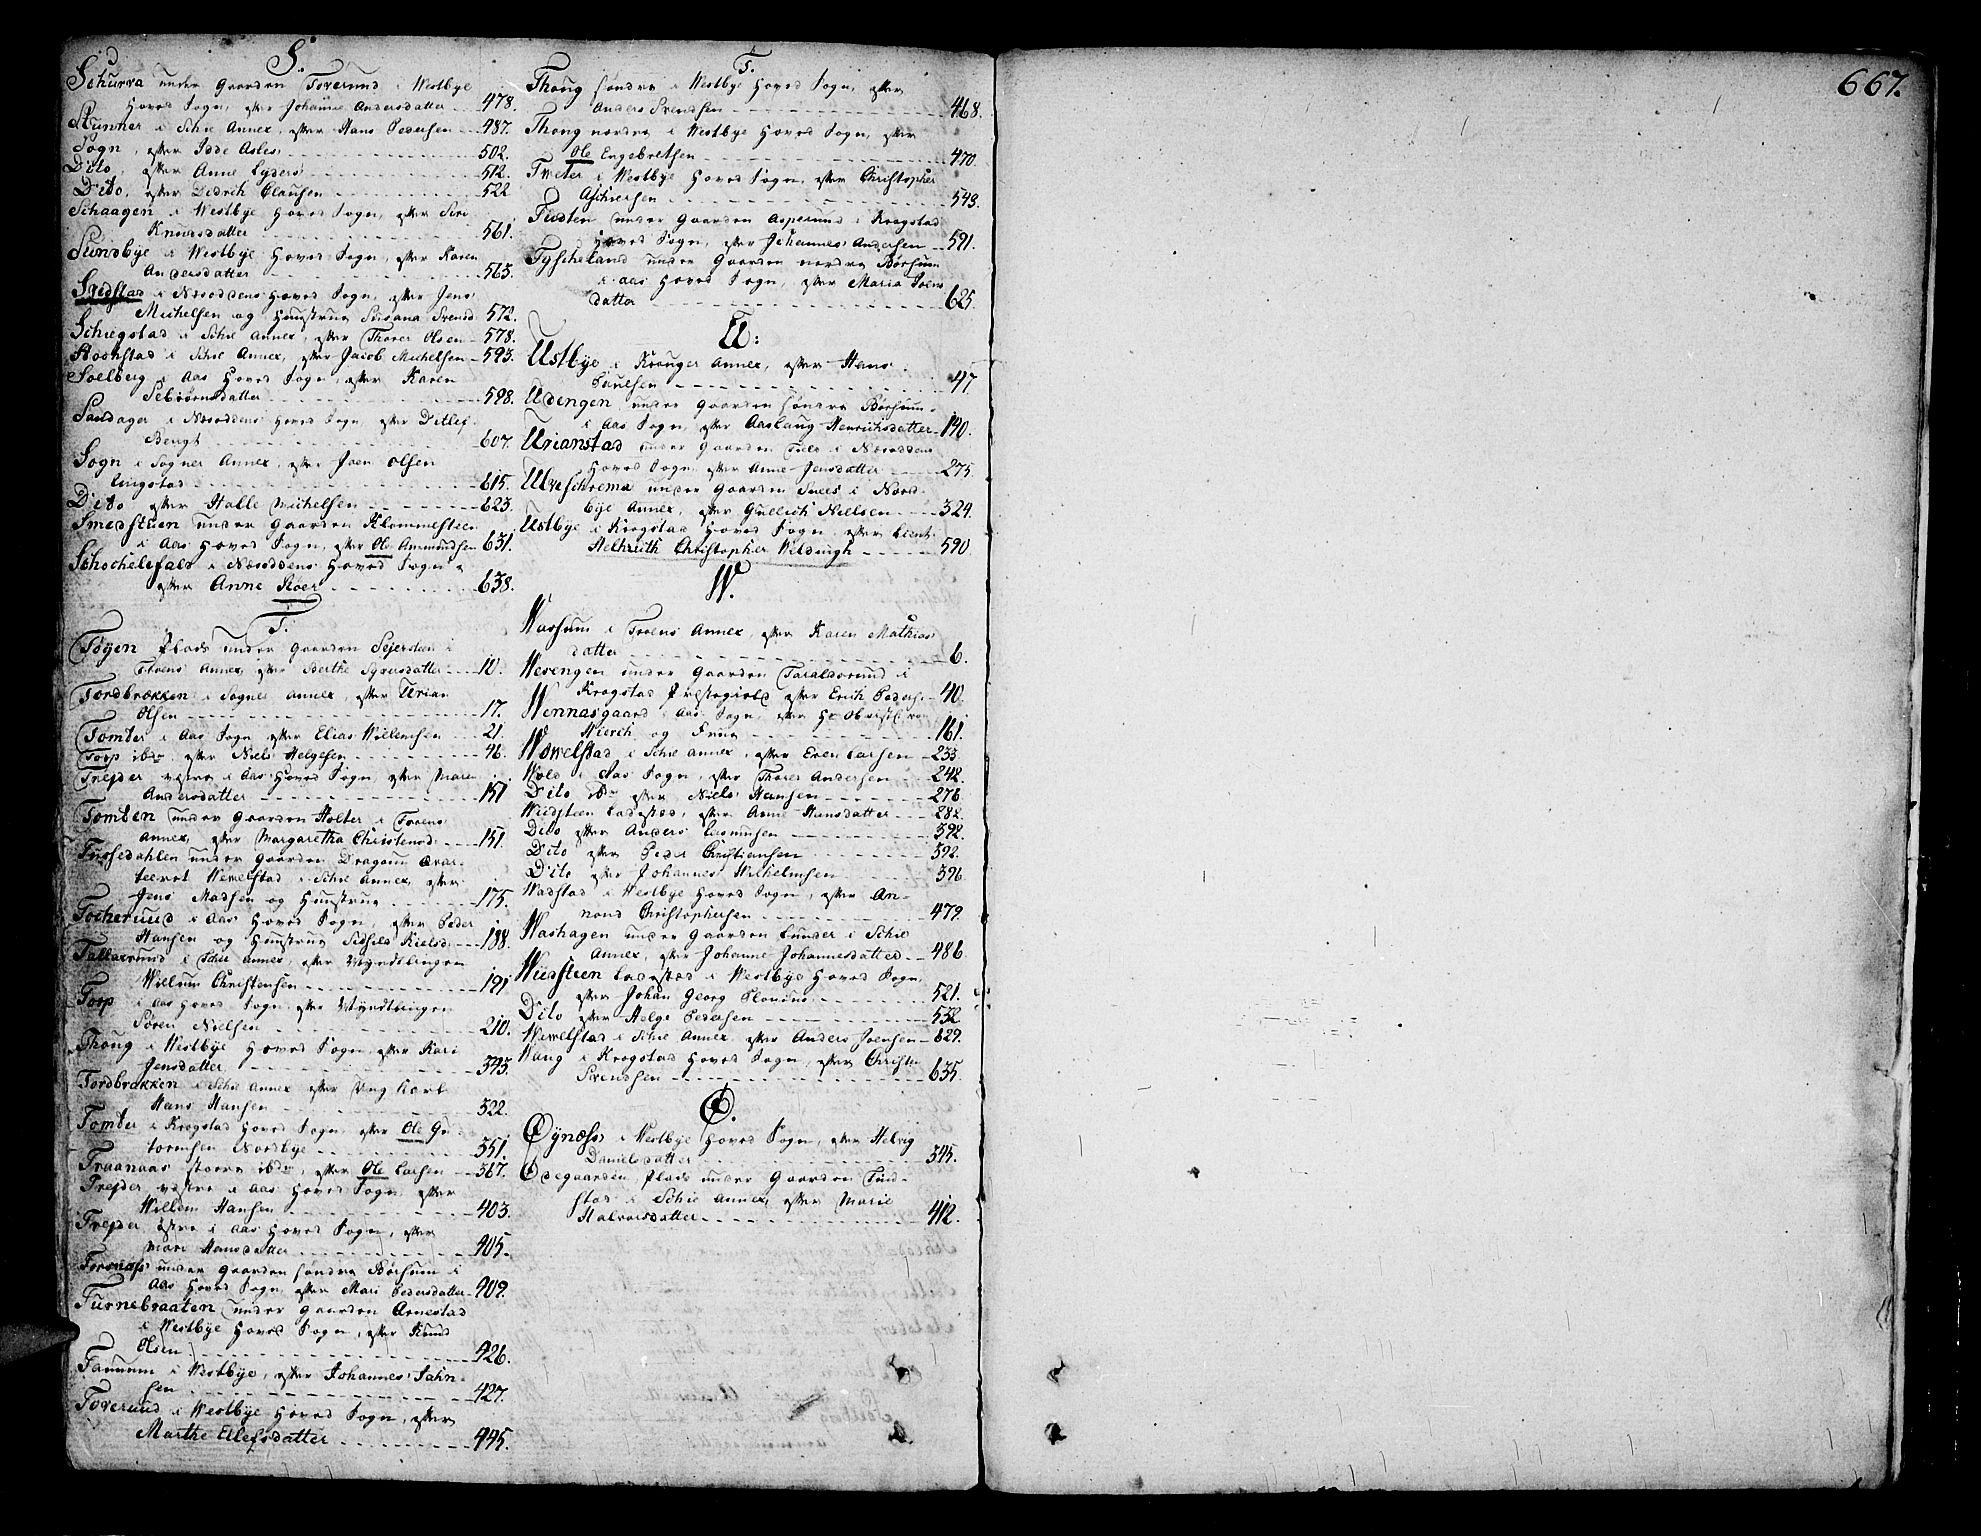 S.
Schurra under Gaarden Toverund i Westbye
Hoved Sogn, efter Johanne Andersdatter 478.
Stunner i Schie Annex, efter Hans Pedersen 487.
Sogn, efter Inde Asles 502.
Dito, efter Anne Lyders 512.
Dito, efter Didrich Clausen 522
Schaagen i Westbye Hoved Sogn, efter Siri
Knudsdatter 561.
Sundbye i Westbye Hoved Sogn, efter Karen
Andersdatter 563.
i Næsoddens Hoved Sogn, efter Jens
Michelsen og Huustrue Susana Svensd 572.
Schiegstad i Schie Annex, efter Thorer Olsen 578.
Stochstad i Schie Annex, efter Jacob Michelsen 593.
Soelberg i Aas Hoved Sogn, efter Karen
Sebiørnsdatter 598.
Sandager i Næsoddens Hoved Sogn, efter Ditlef
Bengt 607.
Sogn i Sogner Annex, efter Joen Olsen
Lingstad 615.
Dito efter Halle Michelsen 623.
Smedstuen under Gaarden Klommesteen
i Aas Hoved Sogn, efter Ole Ammundsen 631.
Schochelefald i Næsoddens Hoved Sogn
efter Anne Roer 638.
T.
Tøyen Plads under Gaarden Sejersteen i
Froens Annex, efter Berthe Syversdatter 10.
Tordbrækken i Sogner Annex, efter Urian
Olsen 17.
Tomter i Aas Sogn efter Elias Willumsen 21.
Torp ibdm, efter Niels Helgesen 46.
Trejder vestre i Aas Hoved Sogn, efter Maren
Andersdatter 151
Tomten under Gaarden Holter i Froens
Annex, efter Margaretha Christensd: 151.
Tussedahlen under Gaarden Dragoun Qvar-
teeret Wevelstad i Schie Annex, efter
Jens Madsen og Huustrue 175.
Tocherund i Aas Hoved Sogn, efter Peder
Hansen og Huustrue Sidsele Kielsd: 188.
Tallaxrund i Schie Annex, efter Myndtlingen
Willum Christensen 191
Torp i Aas Hoved Sogn, efter Myndtlingen
Søren Nielsen 210.
Thong i Westbye Hoved Sogn, efter Kari
Jensdatter 343.
Tordbrækken i Schie Annex efter Ung Karl
Hans Hansen 322.
Tomter i Krogstad Hoved Sogn, efter Ole Gu-
tormsen Nordbye 351.
Fraanaas store ibdm, efter Ole Larsen 367.
Trejder vestre i Aas Hoved Sogn, efter
Willom Hansen 403.
Trejder østre i Aas Hoved Sogn, efter
Mari Hansdatter 405.
Torsnæs under Gaarden søndre Børsum i
Aas Hoved Sogn, efter Mari Pedersdatter 409.
Turnebraaten under Gaarden Arnestad
i Westbye Hoved Sogn, efter Knud
Olsen 426.
Fanum i Westbye, efter Johannes Jahn-
sen 427.
Toverund i Westbye Hoved Sogn, efter
Marthe Ellefsdatter 445.
T.
Thong søndre i Westbye Hoved Sogn, efter
Anders Svendsen 468.
Thong nordre i Westbye Hoved Sogn, efter
Ole Engebretsen 470.
Tveter i Westbye Hoved Sogn, efter Christopher
Aschiersen 543.
Tusten under Gaarden Asperund i Krogstad
Hoved Sogn, efter Johannes Andersen 591.
Tyscheland under Gaarden nordre Børsum
i Aas Hoved Sogn, efter Maria Joens
datter 625.
U:
Ustbye i Kraager Annex, efter Hans
Poulsen 47
Udengen under Gaarden søndre Børsum
i Aas Sogn, efter Aaslaug Henrichsdatter 140.
Urianstad under Gaarden i Næsoddens
Hoved Sogn, efter Anne Jensdatter 275.
Ulveschrema under Gaarden Snees i Nord-
bye Annex, efter Gullich Nielsen 324.
Ustbye i Krogstad Hoved Sogn, efter Lieut:
Helmuth Christopher Wildingh 590.
W.
Wassum i Froens Annex, efter Karen Mathias
datter 6.
Wesengen under Gaarden Taraldsrund i
Krogstad Prestegield efter Erich Peders: 40.
Wennasgaard i Aas Sogn, efter Hr Obristl: von
Hierch og Frue 161.
Wewelstad i Schie Annex, efter Even Larsen 233.
Wold i Aas Sogn, efter Thorer Andersen 242.
Dito ibdm efter Niels Hansen 276.
Widsteen Ladested, efter Anne Hansdatter 282.
Dito efter Anders Rasmusen 392.
Dito efter Peder Christiansen 392.
Dito efter Johannes Wilhelmsen 396
Wadstad i Westbye Hoved Sogn, efter An-
nond Christophersen 479.
Washagen under Gaarden Lunder i Schie
Annex, efter Johanne Johannesdatter 486.
Widsteen Ladested i Westbye Hoved Sogn,
efter Johan Georg Clonius 521.
Dito efter Helge Pedersen 552
Wewelstad i Schie Annex efter Anders Joensen 629.
Wang i Krogstad Hoved Sogn, efter Christi
Svendsen 635.
Ø.
Øynæss i Westbye Hoved Sogn, efter Helvig
Danielsdatter 345.
Ødegaarden Plads under Gaarden Find-
stad i Schie Annex, efter Marie
Halvorsdatter 412.
667.